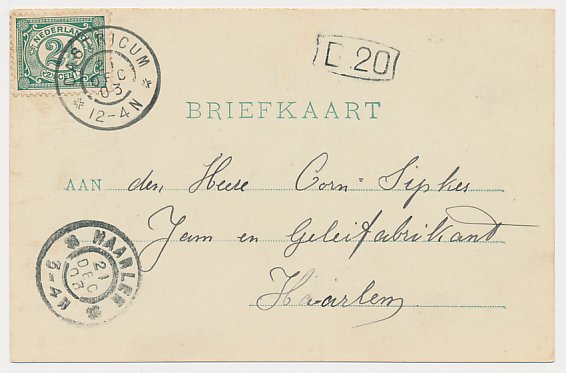 NEDERLAND
2½
CENT
CASTRICUM
21
DEC
03
12-4N
D 20
BRIEFKAART
AAN den Heere Corn= Sipkes
Jam en Geleifabrikant
Haarlem
HAARLEM
21
DEC
03
3-4N